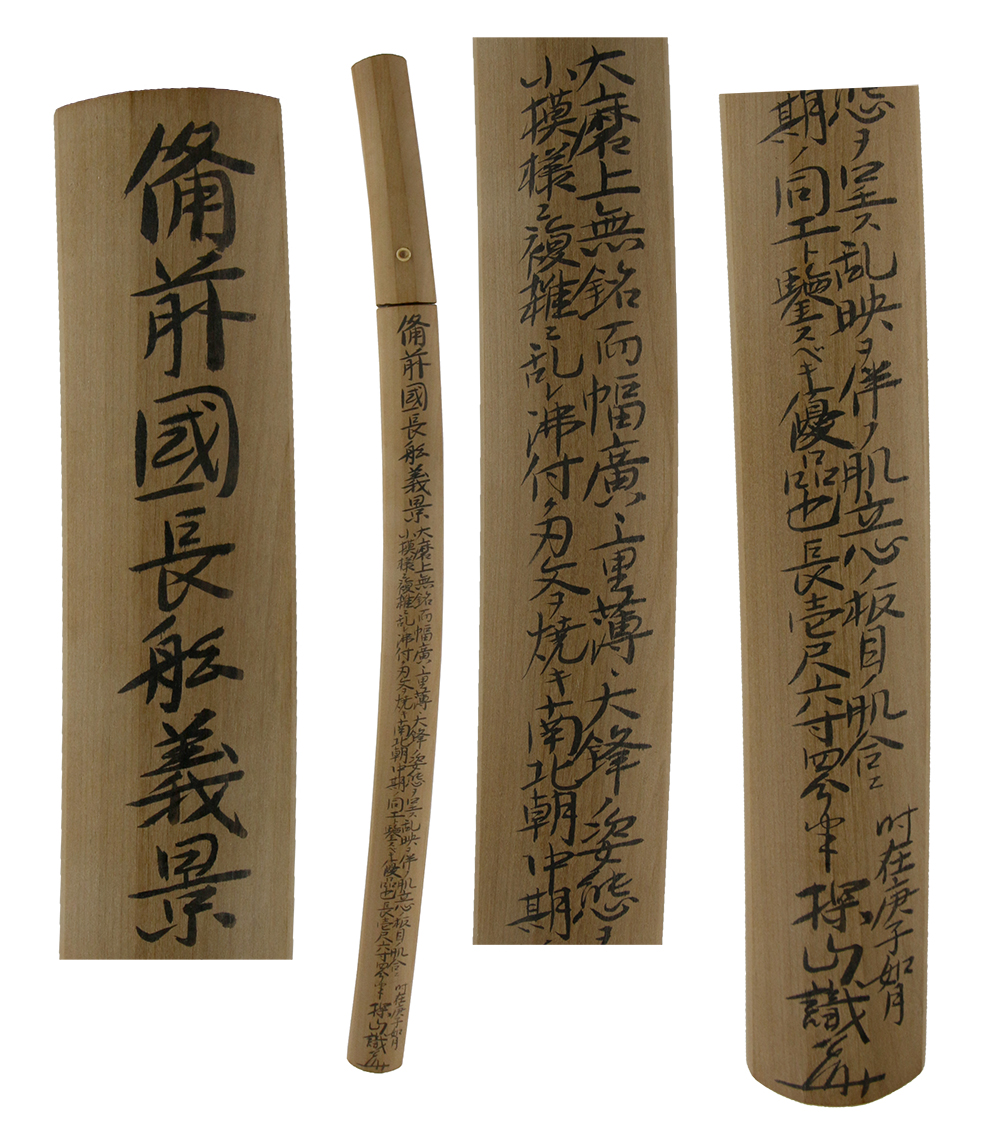 備前國長船義景
備前國長船義景
大磨上無銘而幅廣ク重薄ク大鋒ノ姿態ヲ呈ス乱映ヲ伴ノ肌立心ノ板目ノ肌合ニ
小摸様ニ複雑ニ乱レ沸付ク刃文ヲ焼キ南北朝中期ノ同工ト鑒スベキ優品也長壱尺六寸四分半
時在庚子如月
探山識
大磨上無銘而幅廣ク重薄ク大鋒ノ姿態ヲ
小摸様ニ複雑ニ乱レ沸付ク刃文ヲ焼キ南北朝中期ノ
態ヲ呈ス乱映ヲ伴ノ肌立心ノ板目ノ肌合ニ
期ノ同工ト鑒スベキ優品也長壱尺六寸四分半
時在庚子如月
探山識